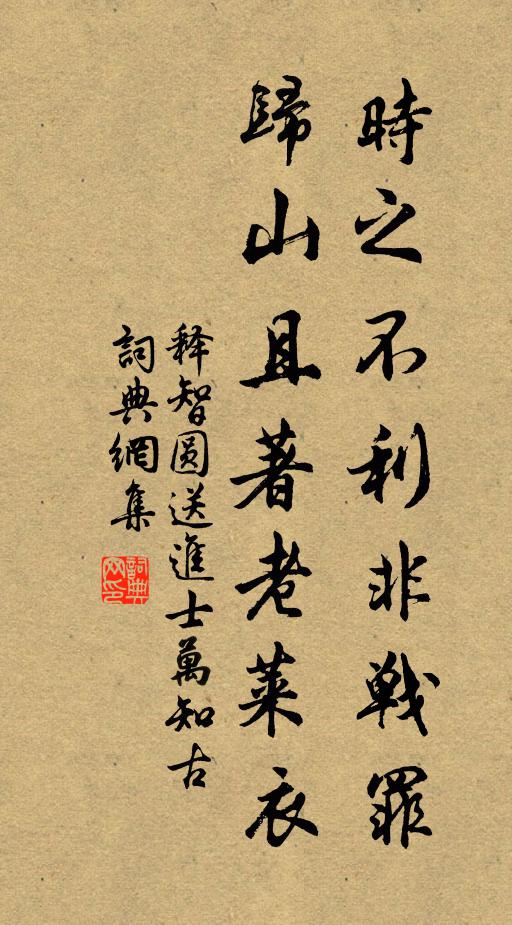 時之不利非戰罪
歸山且著老萊衣
释智圆送進士萬知古
詞典網集
詞典
网印